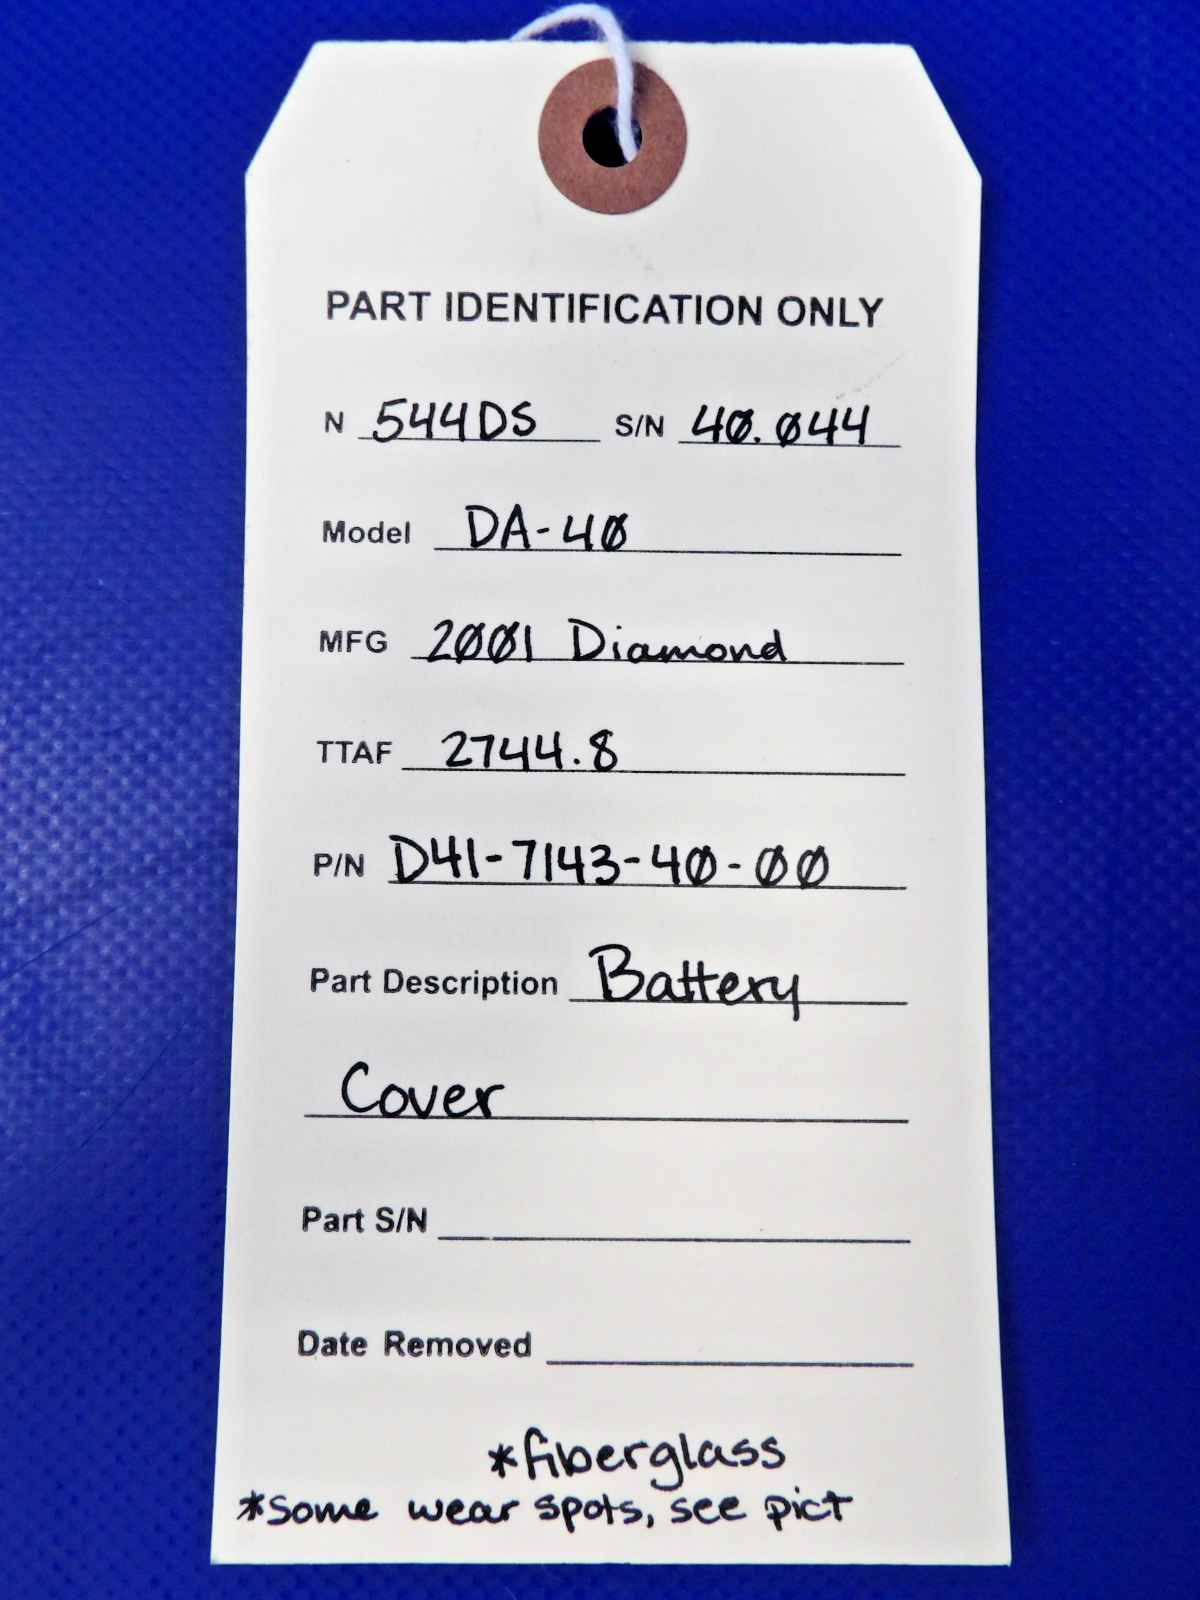 PART IDENTIFICATION ONLY
N 544DS S/N 40.044
Model DA-40
MFG 2001 Diamond
TTAF 2744.8
P/N D41-7143-40-00
Part Description Battery
Cover
Part S/N
Date Removed
*fiberglass
*some wear spots, see pict